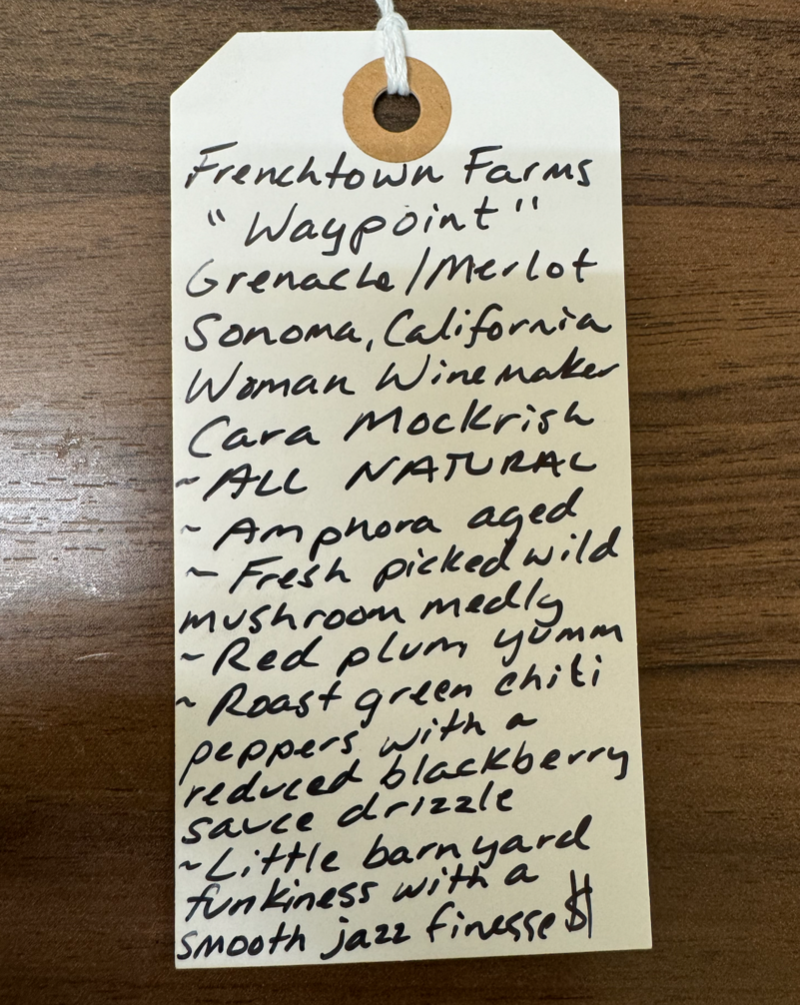 Frenchtown Farms
"Waypoint"
Grenache/Merlot
Sonoma, California
Woman Winemaker
Cara Mockrish
~ALL NATURAL
~Amphora aged
~Fresh picked wild
mushroom medly
~Red plum yumm
~Roast green chili
peppers with a
reduced blackberry
sauce drizzle
~Little barnyard
funkiness with a
smooth jazz finesse $